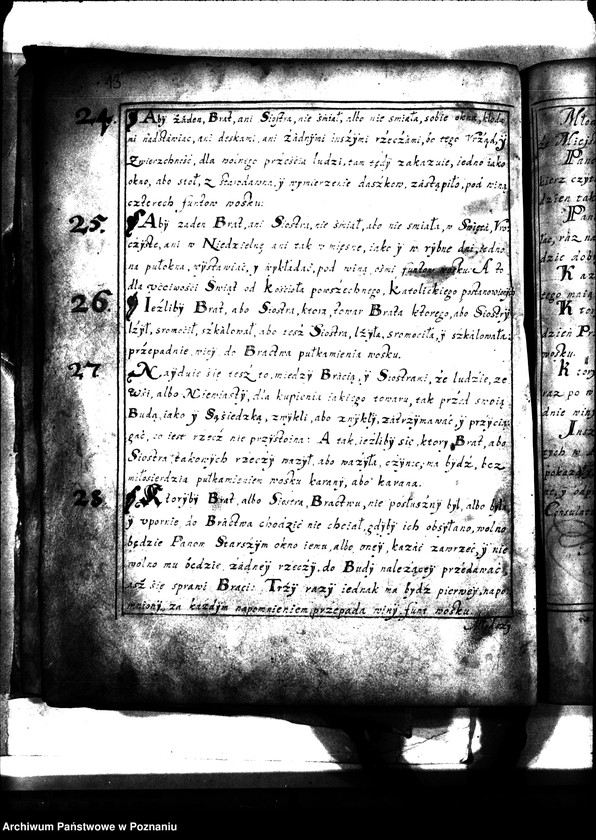 13
24. Aby żaden, Brat, ani Siostra, nie śmiał, albo nie smiała, sobie okna, kłoda
mi nadstawiać, ani deskami, ani żadnymi inszymi rzeczami, bo tego Vrząd, y
Zwierzchność, dla wolnego prześcia ludzi, tam tędy zakazuie, iedno iako
okno, abo stoł, z starodawna, y wymierzenie daszkow, zastąpiło, pod winą
czterech funtow wosku.
25. Aby zaden Brat, ani Siostra, nie śmiał, abo nie smiała, w Swięta, Vro
czyste, ani w Niedzielne ani tak w mięsne, iako y w rybne dni, iedno
na pułokna, wystawiać, y wykładać, pod winą ośmi funtow wosku. A to
dla vczciwości Swiąt od Kościoła powszechnego, Katolickiego postanowionych
26. Ieżliby Brat, abo Siostra, ktora, towar Brata ktorego, abo Siostry
lżył, sromocił, szkalował, abo tesz Siostra, lżyła, sromociła, y szkalowała:
przepadnie winy do Bractwa pułkamienia wosku.
27. Nayduie się tesz to, miedzy Bracią, y Siostrami, że ludzie, ze
Wśi, albo Niewiasty, dla kupienia iakiego towaru, tak przed swoią
Budą, iako y Sąsiedzką, zwykli, abo zwykły, zatrzymawać, y przycią
gać, co iest rzecz nie przystoina: A tak, ieżliby sie, ktory Brat, abo
Siostra takowych rzeczy ważył, abo ważyła, czynić, ma bydź, bez
miłosierdzia pułkamieniem wosku karany, abo karana.
28. Ktoryby Brat, albo Siostra, Bractwu, nie posłuszny był, albo była
y vpornie, do Bractwa chodzić nie chciał, gdyby ich obsyłano, wolno
będzie Panom Starszym okno iemu, albo oney, kazać zawrzeć, y nie
wolno mu będzie, żadney rzeczy, do Budy należącey przedawać
asz się sprawi Braci: Trzy razy iednak ma bydź pierwey, napo
mniony, za każdym napomnieniem, przepada winy, funt wosku.
Archiwum Państwowe w Poznaniu